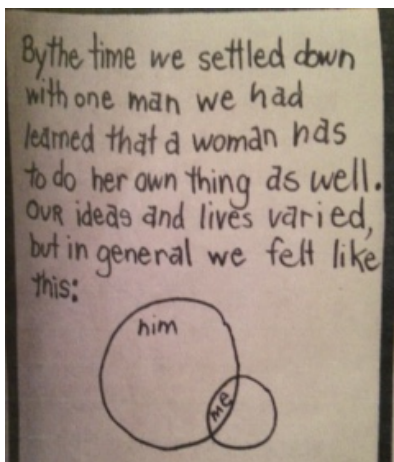 By the time we settled down
with one man we had
learned that a woman has
to do her own thing as well.
OUR ideas and lives varied,
but in general we felt like
this:
him
me